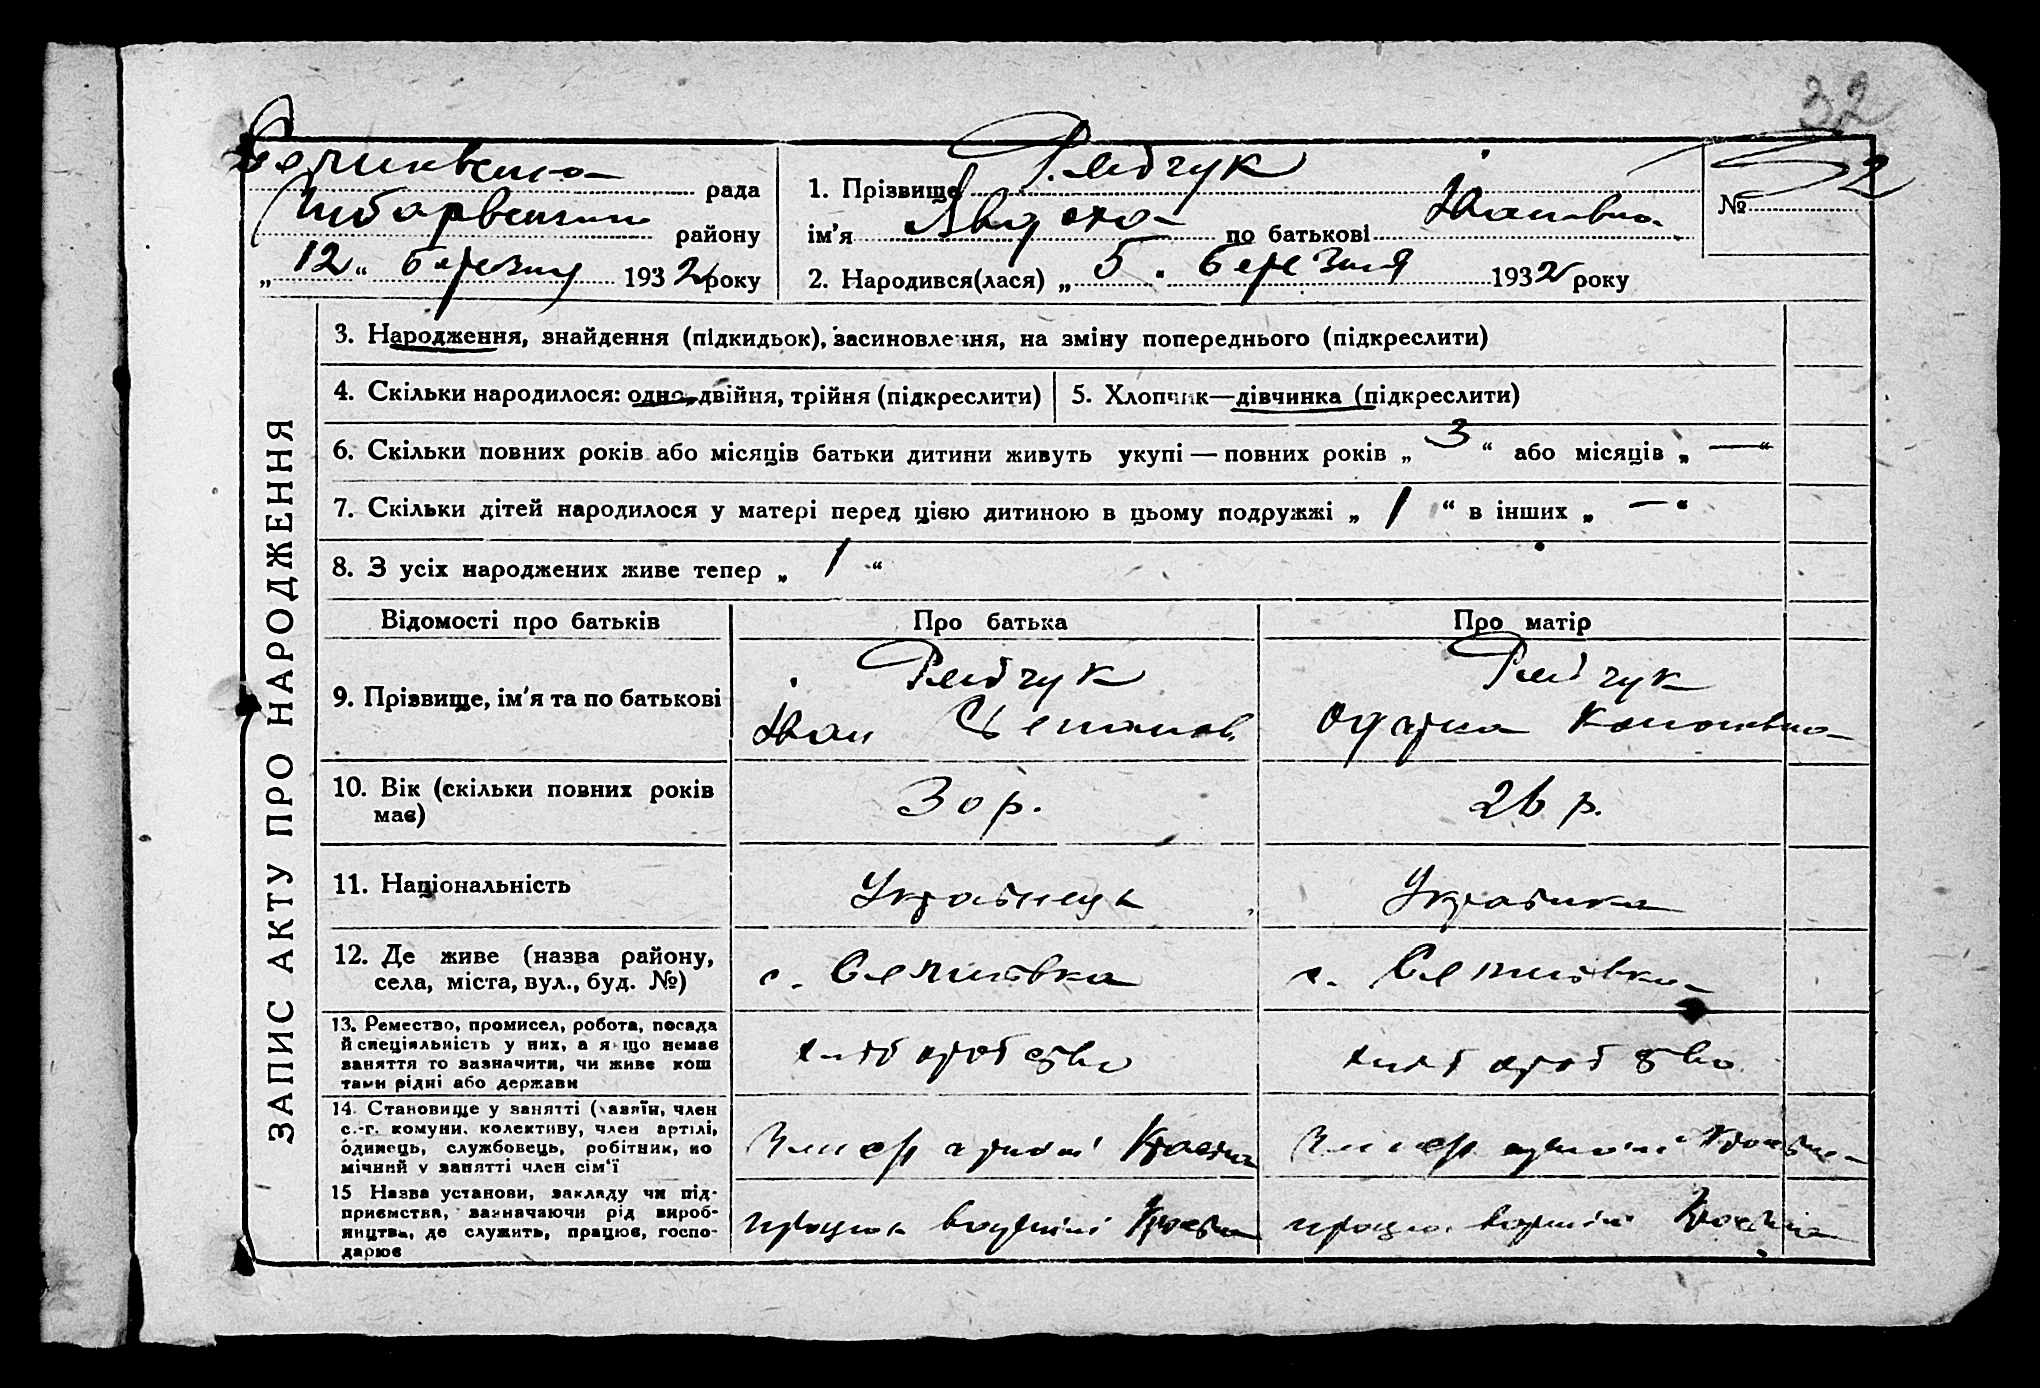 32
рада
району
„ 12 “ березня 1932 року
1. Прізвище Рябчук
ім'я по батькові Іванівна
№ 32
2. Народився(лася) „ 5 “ березня 1932 року
ЗАПИС АКТУ ПРО НАРОДЖЕННЯ
3. Народження, знайдення (підкидьок), засиновлення, на зміну попереднього (підкреслити)
4. Скільки народилося: одно, двійня, трійня (підкреслити)
5. Хлопчик—дівчинка (підкреслити)
6. Скільки повних років або місяців батьки дитини живуть укупі — повних років „ 3 “ або місяців „ — “
7. Скільки дітей народилося у матері перед цією дитиною в цьому подружжі „ 1 “ в інших „ — “
8. З усіх народжених живе тепер „ 1 “
Відомості про батьків
Про батька
Про матір
9. Прізвище, ім'я та по батькові
Рябчук
Іван Степанов.
Рябчук
Одарка
10. Вік (скільки повних років
має)
30 р.
26 р.
11. Національність
Українець
Українка
12. Де живе (назва району,
села, міста, вул., буд. №)
с.
с.
13. Ремество, промисел, робота, посада
й спеціяльність у них, а якщо немає
заняття то зазначити, чи живе кош
тами рідні або держави
хліборобство
хліборобство
14. Становище у занятті (хазяїн, член
с.-г. комуни, колективу, член артілі,
одинець, службовець, робітник, по
мічний у занятті член сім'ї
15 Назва установи, закладу чи під-
приємства, зазначаючи рід вироб-
ництва, де служить, працює, госпо-
дарює